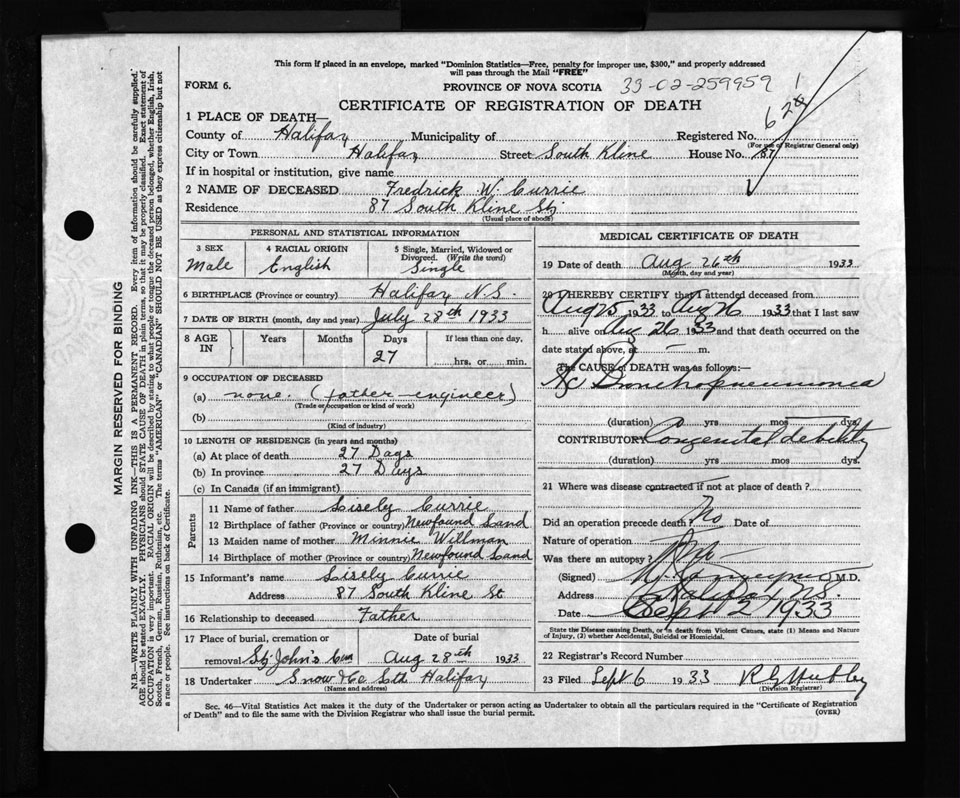 This form if placed in an envelope, marked "Dominion Statistics—Free, penalty for improper use, $300," and properly addressed
will pass through the Mail "FREE"
FORM 6.
PROVINCE OF NOVA SCOTIA 33-02-259959
CERTIFICATE OF REGISTRATION OF DEATH
1 PLACE OF DEATH—
County of Halifax Municipality of Registered No. 624
(For use of Registrar General only)
City or Town Halifax Street South Kline House No. 87
If in hospital or institution, give name
2 NAME OF DECEASED Fredrick W. Currie
Residence 87 South Kline St;
(Usual place of abode)
PERSONAL AND STATISTICAL INFORMATION
3 SEX 4 RACIAL ORIGIN 5 Single, Married, Widowed or Divorced. (Write the word)
Male English Single
6 BIRTHPLACE (Province or country) Halifax N.S.
7 DATE OF BIRTH (month, day and year) July 28th 1933
8 AGE IN Years Months Days If less than one day,
27 hrs. or min.
9 OCCUPATION OF DECEASED
(a) none. (father - engineer)
(Trade or occupation or kind of work)
(b)
(Kind of industry)
10 LENGTH OF RESIDENCE (in years and months)
(a) At place of death 27 Days
(b) In province 27 Days
(c) In Canada (if an immigrant)
Parents
11 Name of father Lisely Currie
12 Birthplace of father (Province or country) Newfound Land
13 Maiden name of mother Minnie Willman
14 Birthplace of mother (Province or country) Newfound Land
15 Informant's name Lisely Currie
Address 87 South Kline St
16 Relationship to deceased Father
17 Place of burial, cremation or Date of burial
removal St; John's Cem Aug 28th 1933
18 Undertaker Snow &Co Ltd Halifax
(Name and address)
MEDICAL CERTIFICATE OF DEATH
19 Date of death Aug 26th 1933
(Month, day and year)
20 I HEREBY CERTIFY that I attended deceased from
Aug 25 1933 to Aug 26 1933 that I last saw
h alive on Aug 26 1933 and that death occurred on the
date stated above, at — m.
The CAUSE of DEATH was as follows:—
Ac Bronchopneumonia
(duration) yrs mos dys.
CONTRIBUTORY Congenital debility
(duration) yrs mos dys.
21 Where was disease contracted if not at place of death?
Did an operation precede death? No Date of
Nature of operation
Was there an autopsy? No
(Signed) M.D.
Address Halifax N.S.
Date Sept 2 1933
State the Disease causing Death, or in death from Violent Causes, state (1) Means and Nature
of Injury, (2) whether Accidental, Suicidal or Homicidal.
22 Registrar's Record Number
23 Filed Sept 6 1933 R G Hubley
(Division Registrar)
Sec. 46—Vital Statistics Act makes it the duty of the Undertaker or person acting as Undertaker to obtain all the particulars required in the "Certificate of Registration
of Death" and to file the same with the Division Registrar who shall issue the burial permit.
(OVER)
MARGIN RESERVED FOR BINDING
N.B.—WRITE PLAINLY WITH UNFADING INK—THIS IS A PERMANENT RECORD. Every item of information should be carefully supplied.
AGE should be stated EXACTLY. PHYSICIANS should state CAUSE OF DEATH in plain terms, so that it may be properly classified. Exact statement of
OCCUPATION is very important. RACIAL ORIGIN will be described by stating to what people or tongue the deceased person belonged, whether English, Irish,
Scotch, French, German, Russian, Ruthenian, etc. The terms "AMERICAN" or "CANADIAN" SHOULD NOT BE USED as they express citizenship but not
a race or people. See instructions on back of Certificate.